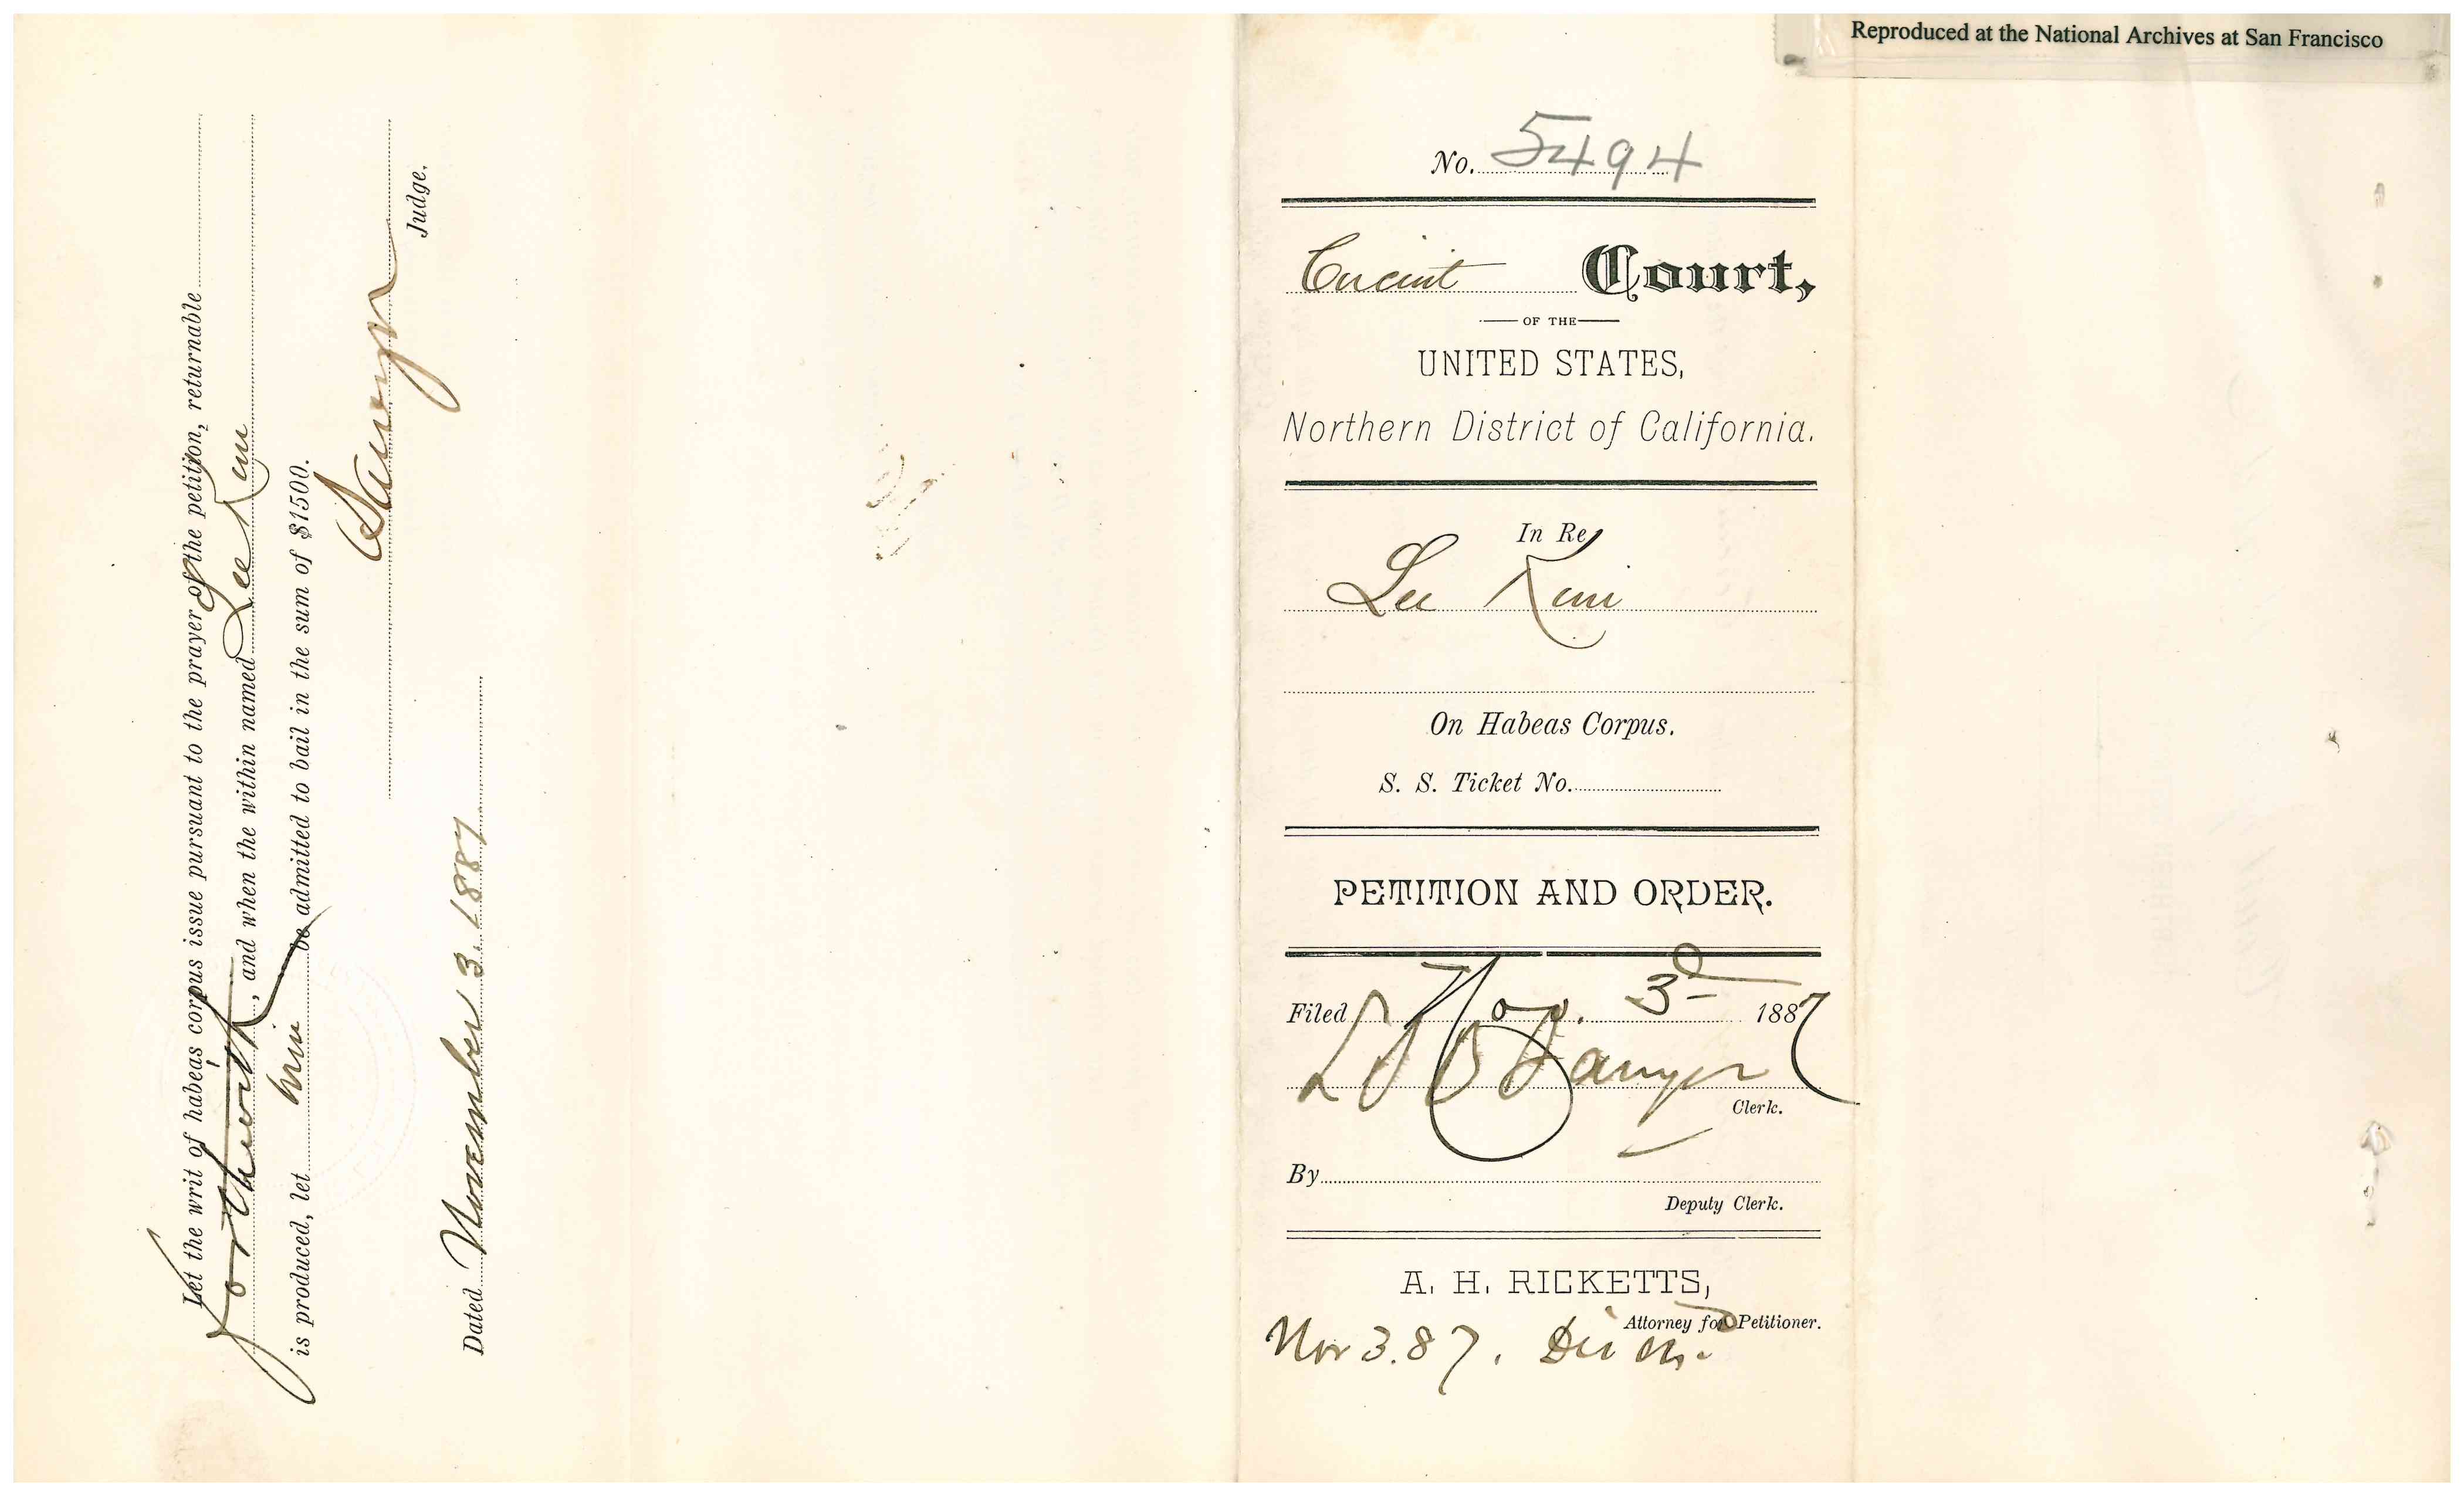 Let the writ of habeas corpus issue pursuant to the prayer of the petition, returnable
forthwith, and when the within named Lee Kim
is produced, let him be admitted to bail in the sum of $1500.
Sawyer
Judge.
Dated November 3. 1887
Reproduced at the National Archives at San Francisco
No. 5494
Circuit Court,
OF THE
UNITED STATES,
Northern District of California.
In Re
Lee Kim
On Habeas Corpus.
S. S. Ticket No.
PETITION AND ORDER.
Filed Nov. 3d 1887
L S B Sawyer
Clerk.
By
Deputy Clerk.
A. H. RICKETTS,
Attorney for Petitioner.
Nov 3. 87.